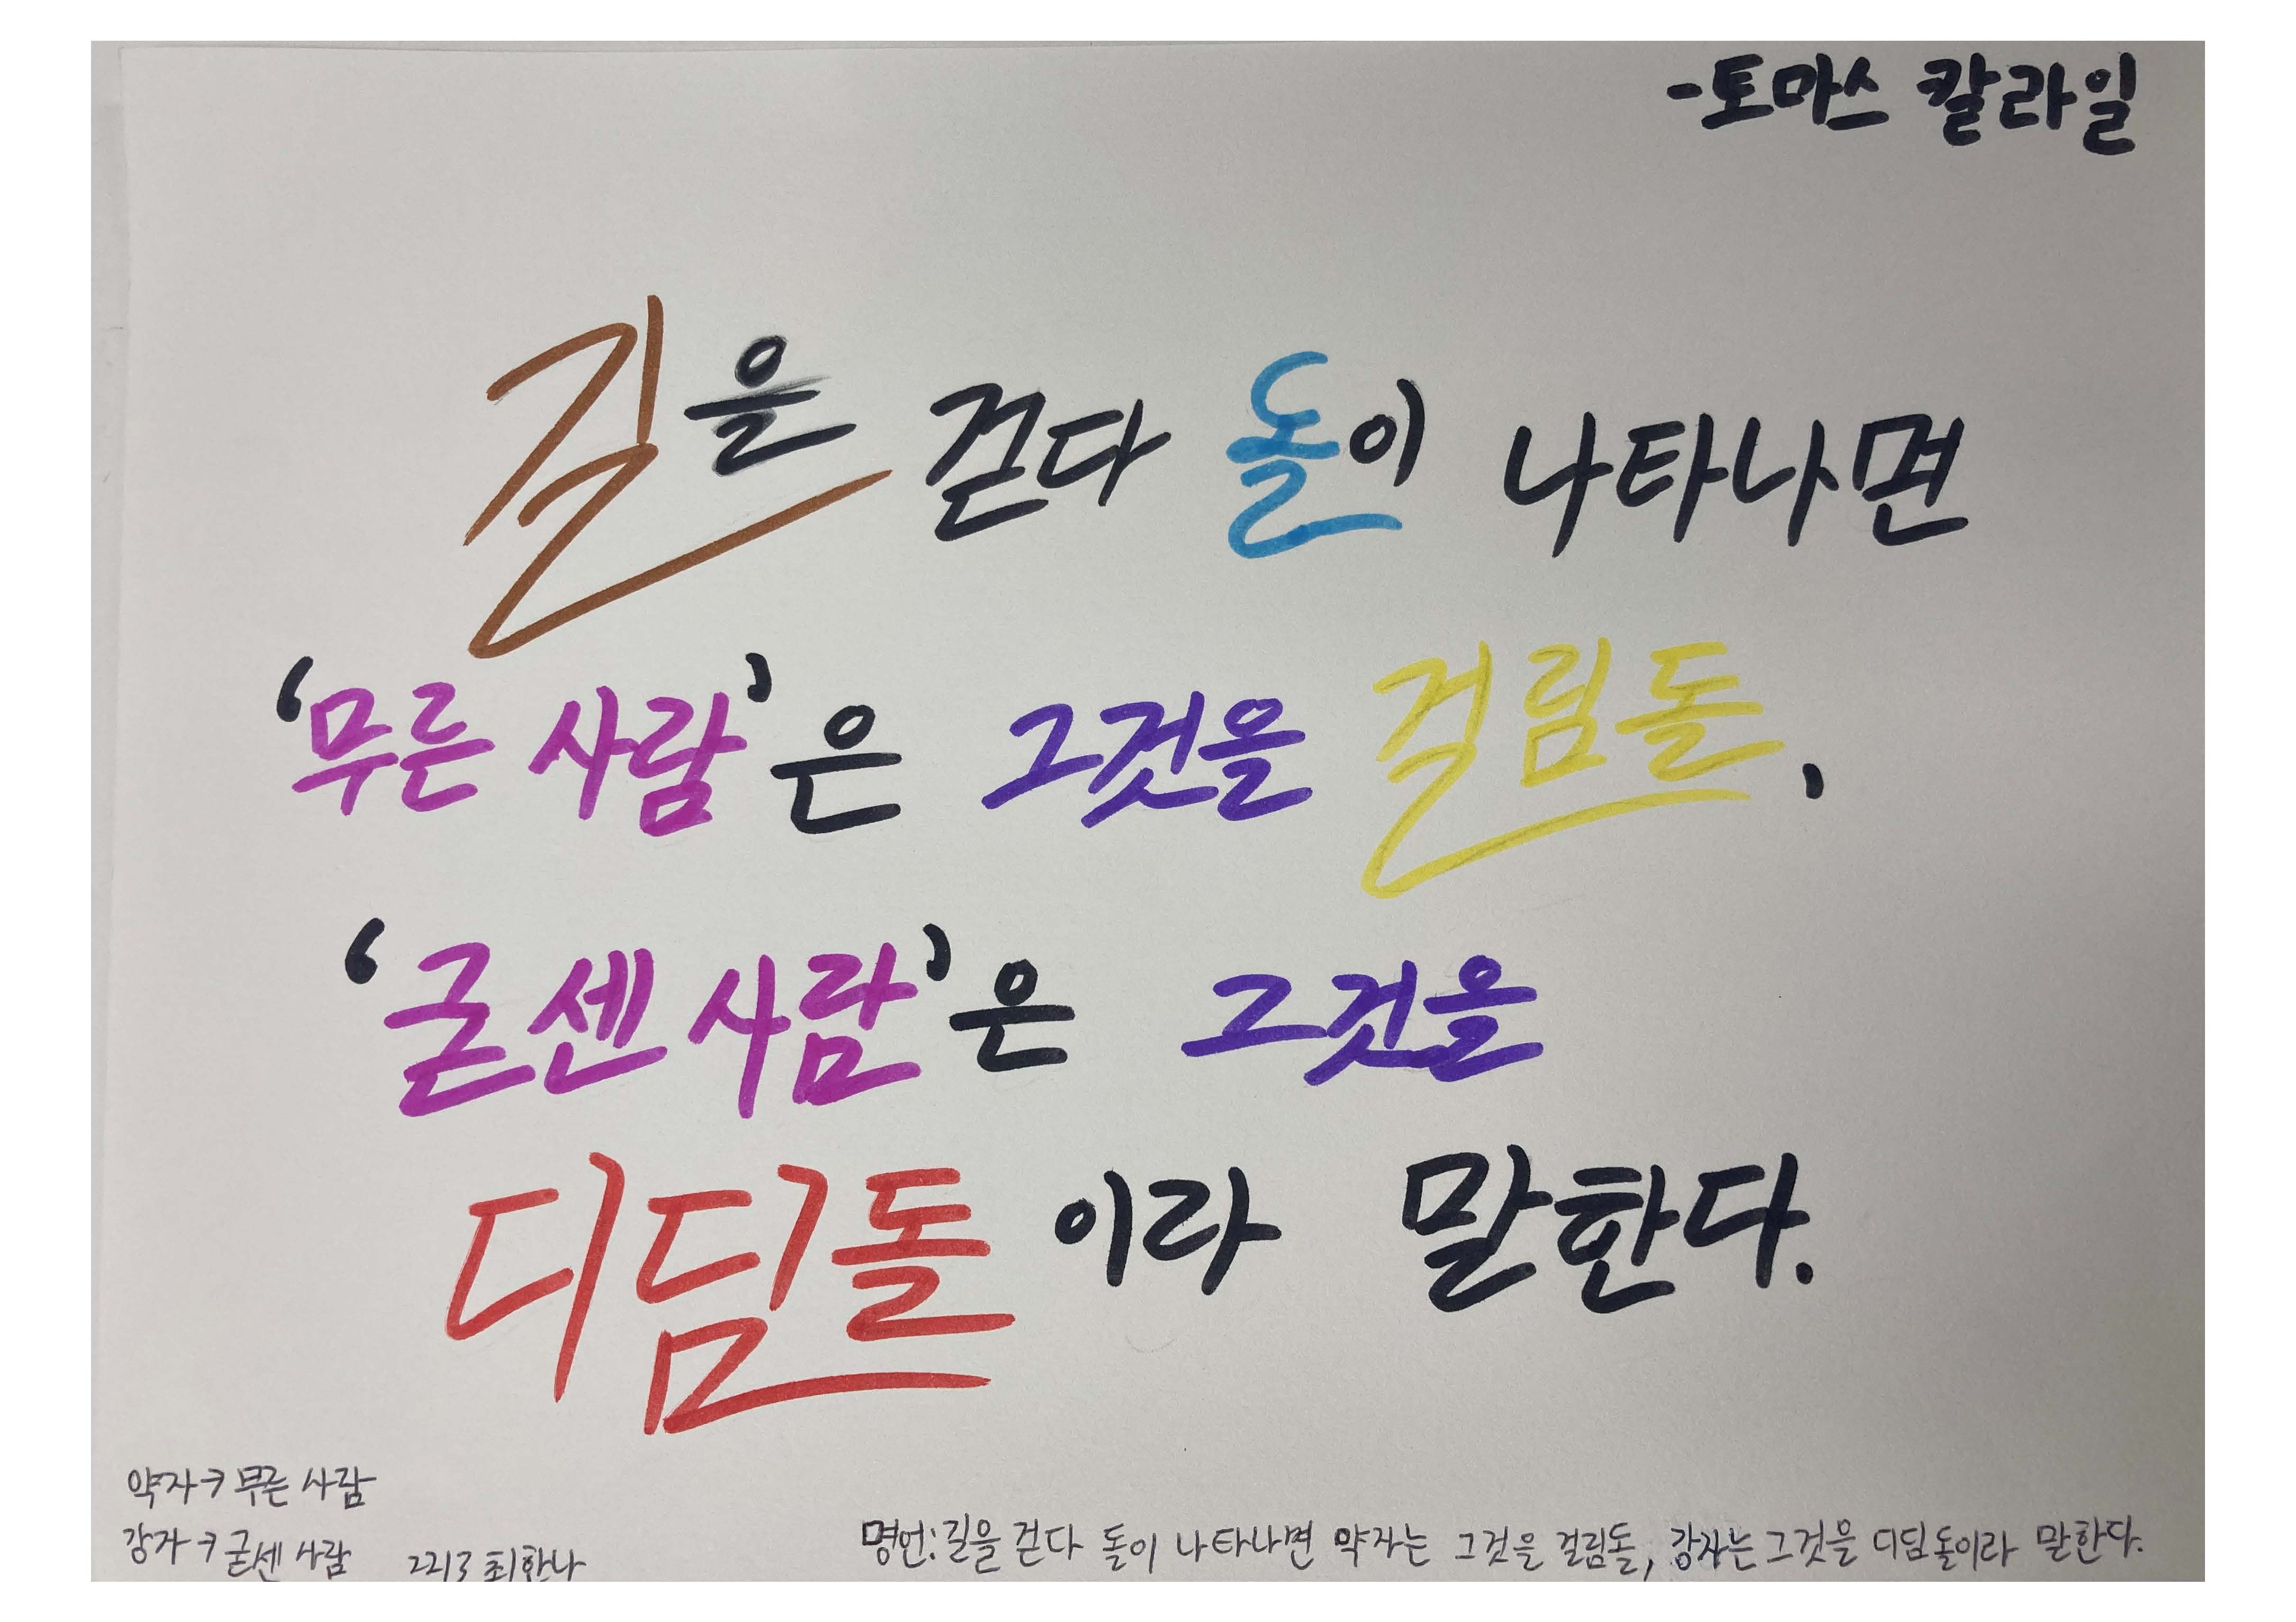 -토마스 칼라일
길을 걷다 돌이 나타나면
'무른 사람'은 그것을 걸림돌,
'굳센 사람'은 그것을
디딤돌 이라 말한다.
약자→무른 사람
강자→굳센 사람
2213 최한나
명언:길을 걷다 돌이 나타나면 약자는 그것을 걸림돌, 강자는 그것을 디딤돌이라 말한다.